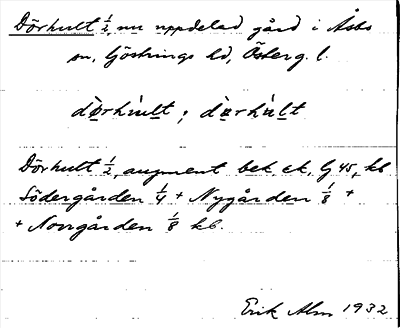 Dörhult 1/2, nu uppdelad gård i Åsbo
sn, Göstrings hd, Österg. l.
dörhult; dörhult
Dörhult 1/2, augment bek, ek, G 45, kb
Södergården 1/4 + Nygården 1/8 +
+ Norrgården 1/8 kb.
Erik Alm 1932